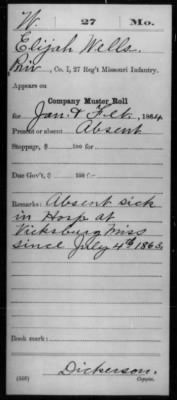 W. 27 Mo.
Elijah Wells
Priv, Co. I, 27 Reg't Missouri Infantry.
Appears on
Company Muster Roll
for Jan. & Feb., 1864
Present or absent Absent
Stoppage, $ 100 for
Due Gov't, $ 100
Remarks: Absent sick
in Hosp at
Vicksburg Miss
since July 4th 1863.
Book mark:
Dickerson.
(358) Copyist.